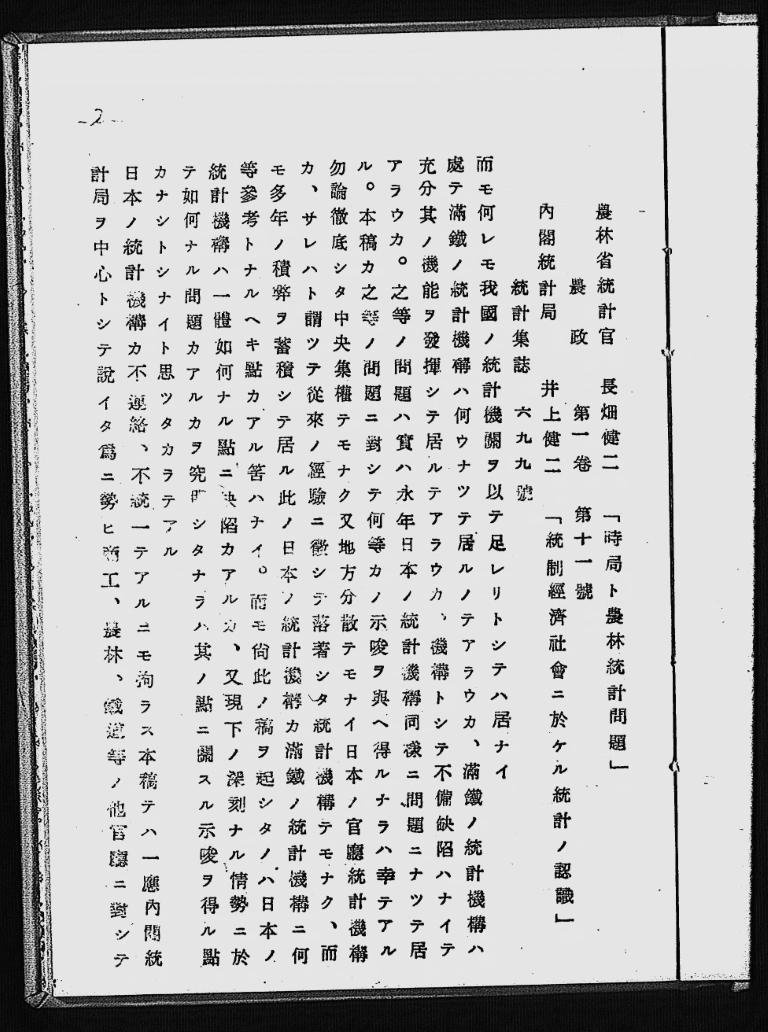 -2-
農林省統計官　長畑健二　「時局ト農林統計問題」
農政　第一卷　第十一號
內閣統計局　井上健二　「統制經濟社會ニ於ケル統計ノ認識」
統計集誌　六九九號
而モ何レモ我國ノ統計機關ヲ以テ足レリトシテハ居ナイ
處テ滿鐵ノ統計機構ハ何ウナツテ居ルノテアラウカ、滿鐵ノ統計機構ハ
充分其ノ機能ヲ發揮シテ居ルテアラウカ、機構トシテ不備缺陷ハナイテ
アラウカ。之等ノ問題ハ實ハ永年日本ノ統計機構同樣ニ問題ニナツテ居
ル。本稿カ之等ノ問題ニ對シテ何等カノ示唆ヲ與ヘ得ルナラハ幸テアル
勿論徹底シタ中央集權テモナク又地方分散テモナイ日本ノ官廳統計機構
カ、サレハト謂ツテ從來ノ經驗ニ徵シテ落著シタ統計機構テモナク、而
モ多年ノ積弊ヲ蓄積シテ居ル此ノ日本ノ統計機構カ滿鐵ノ統計機構ニ何
等參考トナルヘキ點カアル筈ハナイ。而モ尙此ノ稿ヲ起シタノハ日本ノ
統計機構ハ一體如何ナル點ニ缺陷カアルカ、又現下ノ深刻ナル情勢ニ於
テ如何ナル問題カアルカヲ究明シタナラハ其ノ點ニ關スル示唆ヲ得ル點
カナシトシナイト思ツタカラテアル
日本ノ統計機構カ不連絡、不統一テアルニモ拘ラス本稿テハ一應內閣統
計局ヲ中心トシテ說イタ爲ニ勢ヒ商工、農林、鐵道等ノ他官廳ニ對シテ